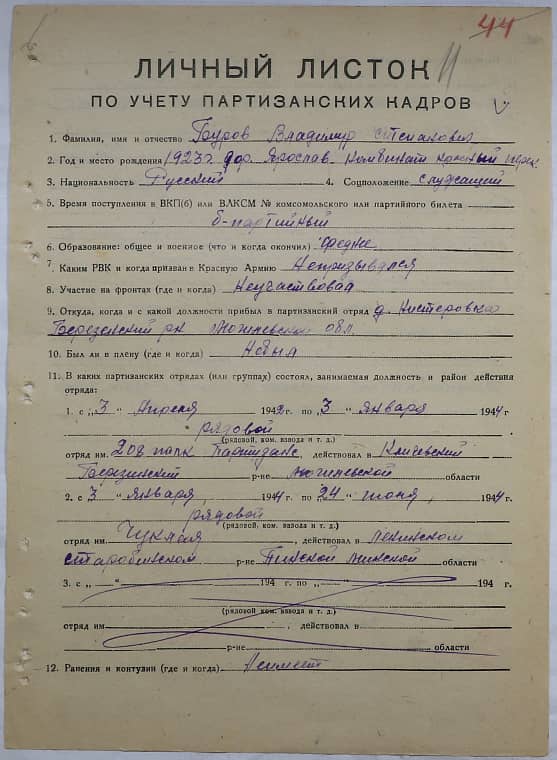 44
11
ЛИЧНЫЙ ЛИСТОК
ПО УЧЕТУ ПАРТИЗАНСКИХ КАДРОВ
1. Фамилия, имя и отчество Буров Владимир Степанович
2. Год и место рождения 1923г гор. Ярослав. Комбинат красный
3. Национальность Русский 4. Соцположение служащий
5. Время поступления в ВКП(б) или ВЛКСМ № комсомольского или партийного билета
б-партийный
6. Образование: общее и военное (что и когда окончил) средне
7. Каким РВК и когда призван в Красную Армию Непризывался
8. Участие на фронтах (где и когда) Неучаствовал
9. Откуда, когда и с какой должности прибыл в партизанский отряд д. Нистеровка
Березенский рн Могилевской обл.
10. Был ли в плену (где и когда) Небыл
11. В каких партизанских отрядах (или группах) состоял, занимаемая должность и район действия
отряда:
1. с „3 “ Апреля 1942 г. по „3 “ января 1944 г
рядовой
(рядовой, ком. взвода и т. д.)
отряд им. 208 Партизанс, действовал в Кличевский
Березинский р-не Могилевской области
2. с „3 “ января, 1944 г. по „24 “ июня, 1944 г
рядовой
(рядовой, ком. взвода и т. д.)
отряд им. Чуклая, действовал в Ленинском
старобинском р-не Пинской Минской области
3. с „ “ 194 г. по „ “ 194 г.
(рядовой, ком. взвода и т. д.)
отряд им , действовал в
р-не области
12. Ранения и контузии (где и когда) Неимеет